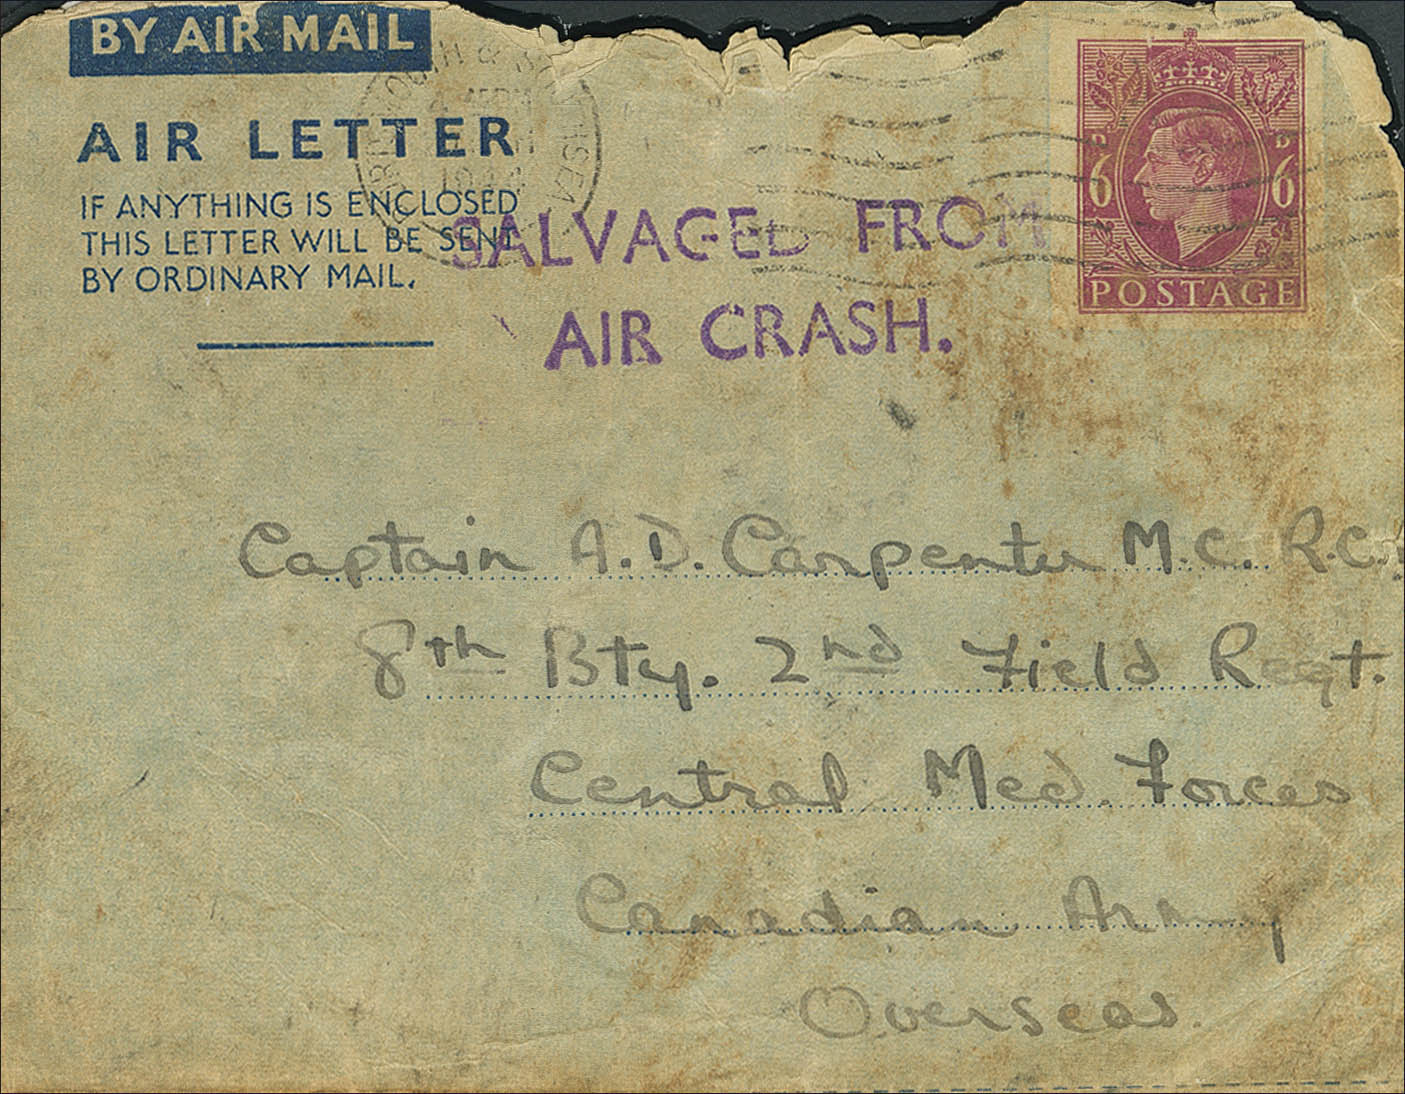 BY AIR MAIL
AIR LETTER
IF ANYTHING IS ENCLOSED
THIS LETTER WILL BE SENT
BY ORDINARY MAIL.
SALVAGED FROM
AIR CRASH.
6 D 6 D
POSTAGE
Captain A.D. Carpenter M.C. R.C.
8th Bty. 2nd Field Regt.
Central Med. Forces
Canadian Army
Overseas.